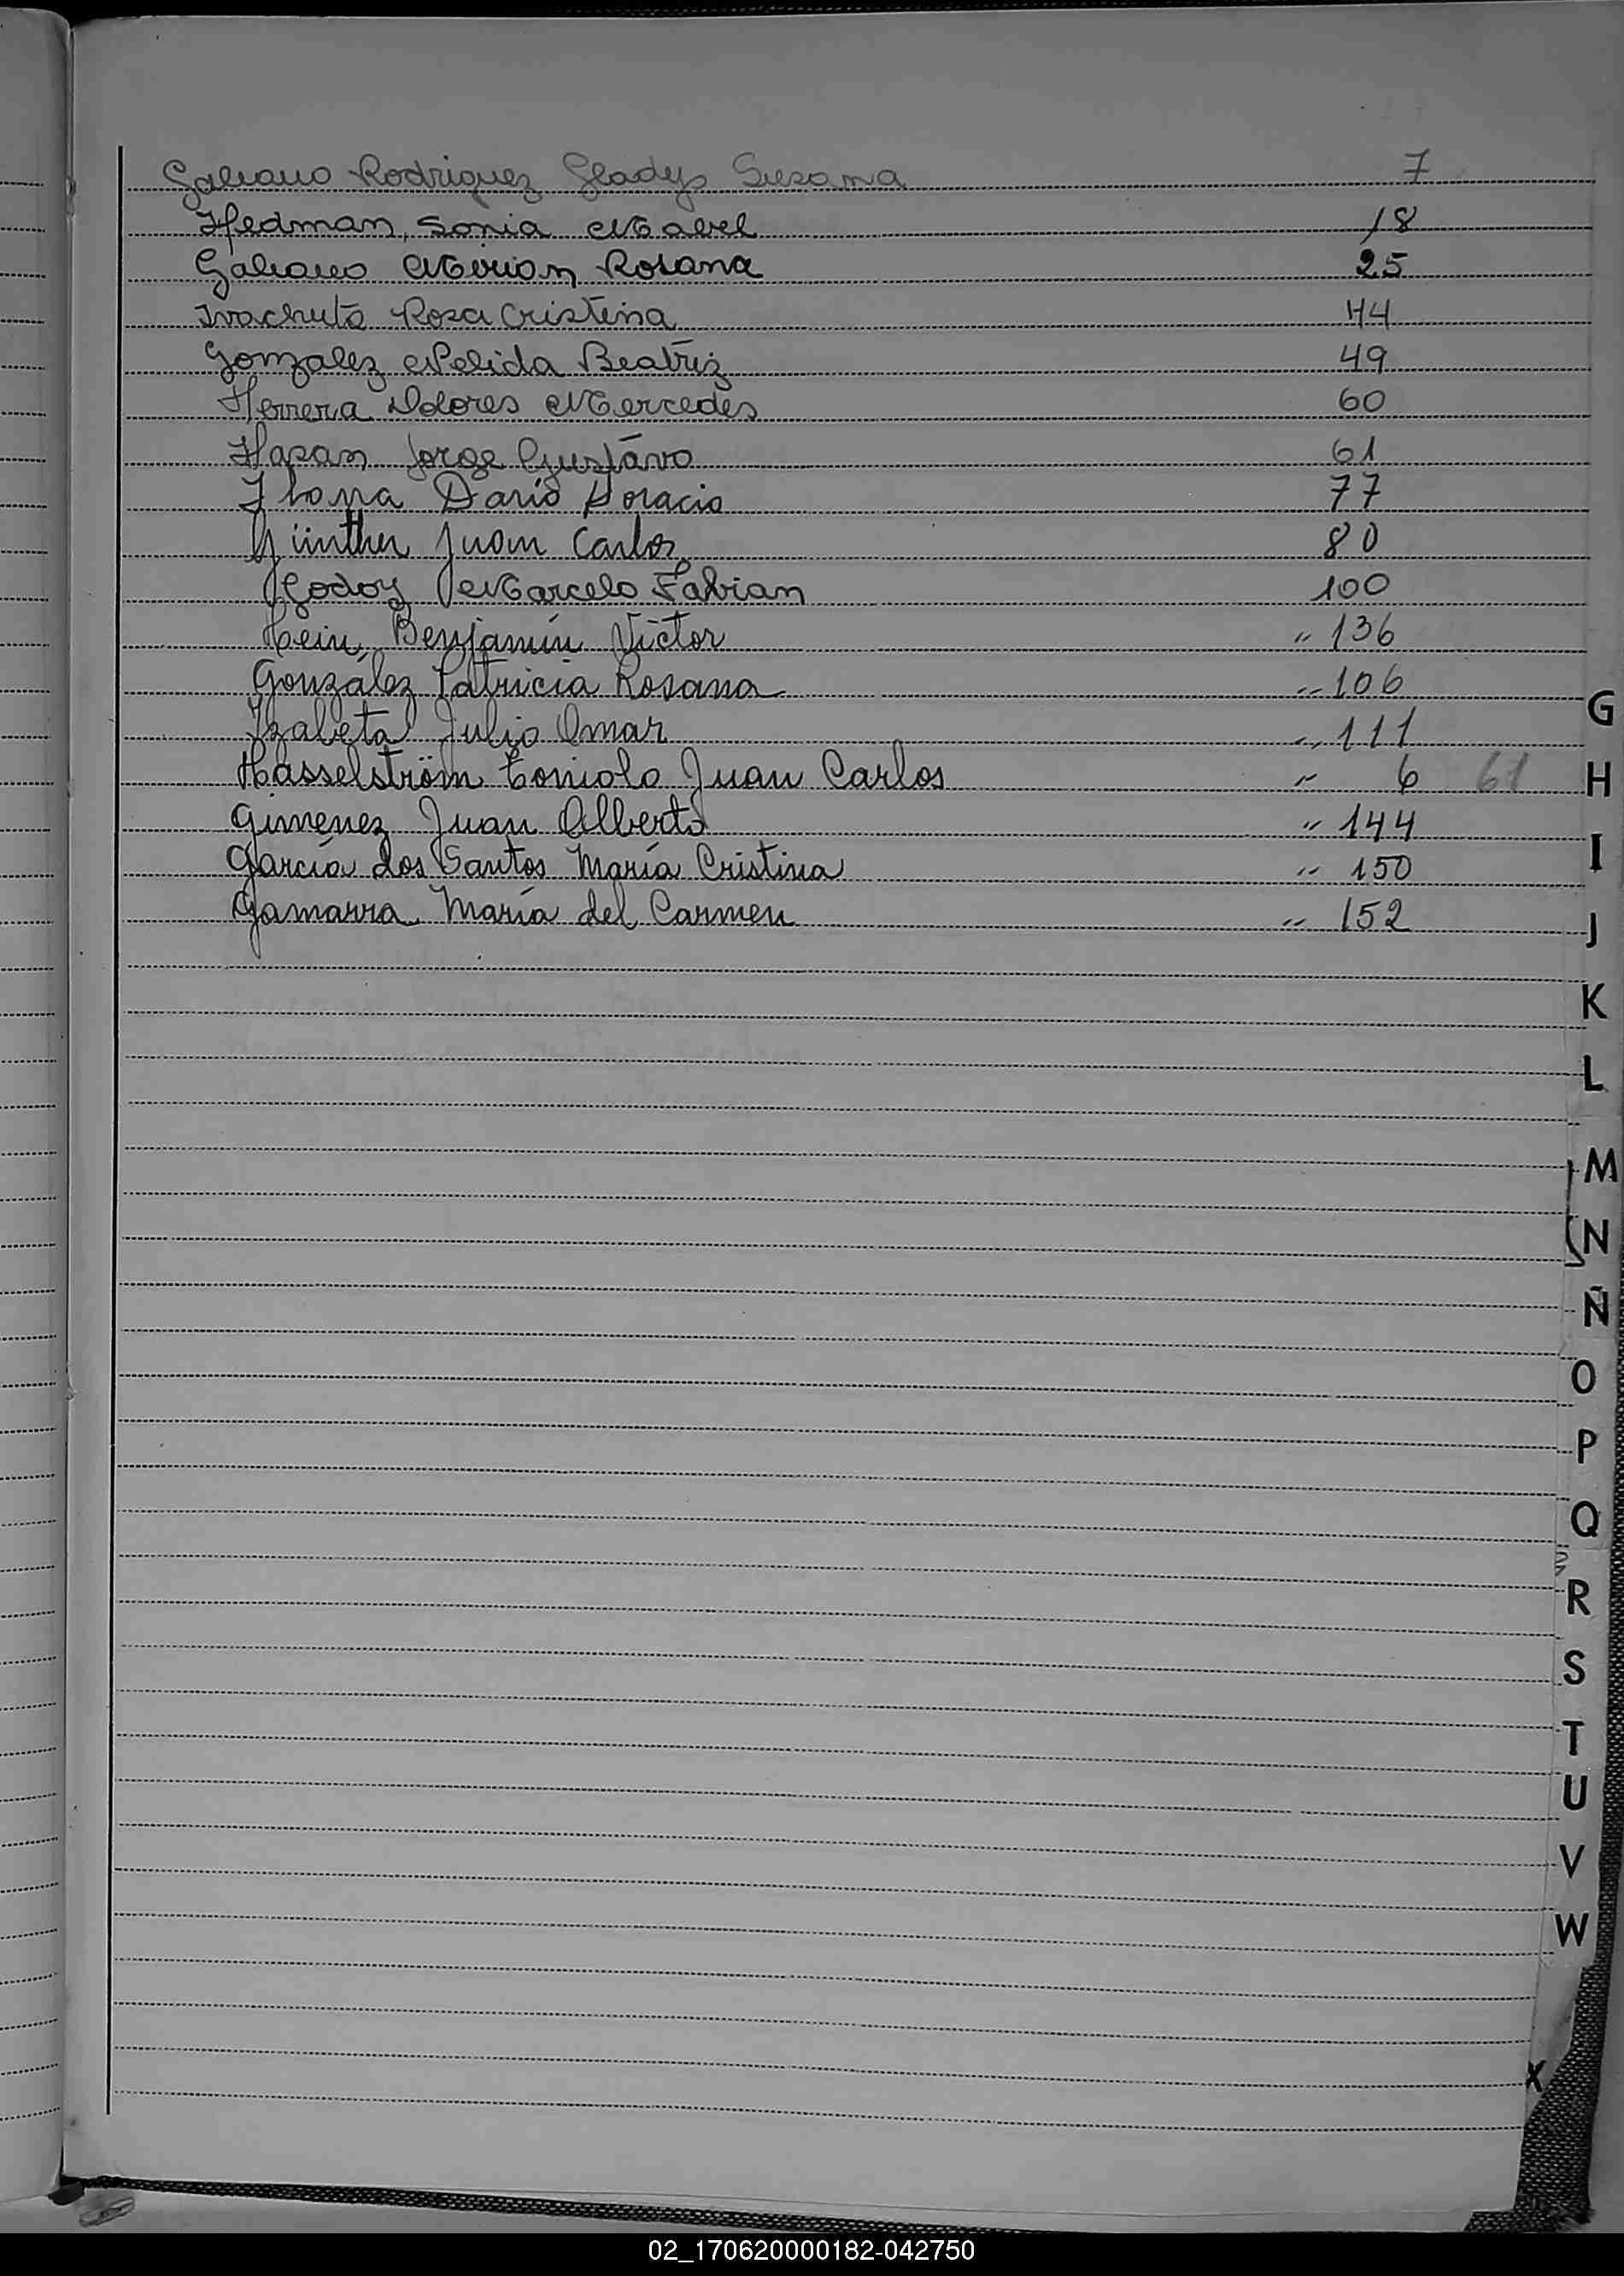 Galeano Rodriguez Gladys Susana 7
Hedman, Sonia Mabel 18
Galeano Mirian Rosana 25
Ivachuta Rosa Cristina 44
Gonzalez Nelida Beatriz 49
Herrera Dolores Mercedes 60
Hasan Jorge Gustavo 61
Darío Horacio 77
Günther Juan Carlos 80
Godoy Marcelo Fabian 100
Hein, Benjamín Víctor " 136
González Patricia Rosana " 106
Izabeta Julio Omar " 111
Hasselström Toniolo Juan Carlos " 6 61
Gimenez Juan Alberto " 144
García dos Santos María Cristina " 150
Gamarra María del Carmen " 152
G
H
I
J
K
L
M
N
Ñ
O
P
Q
R
S
T
U
V
W
X
02_170620000182-042750